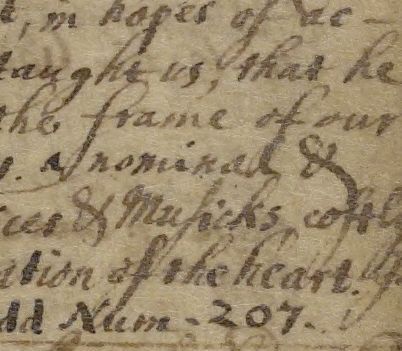 in hopes of ac-
taught us, that he
the frame of our
nominal &
& Musicks, costly
ation of the heart.
Num-207.